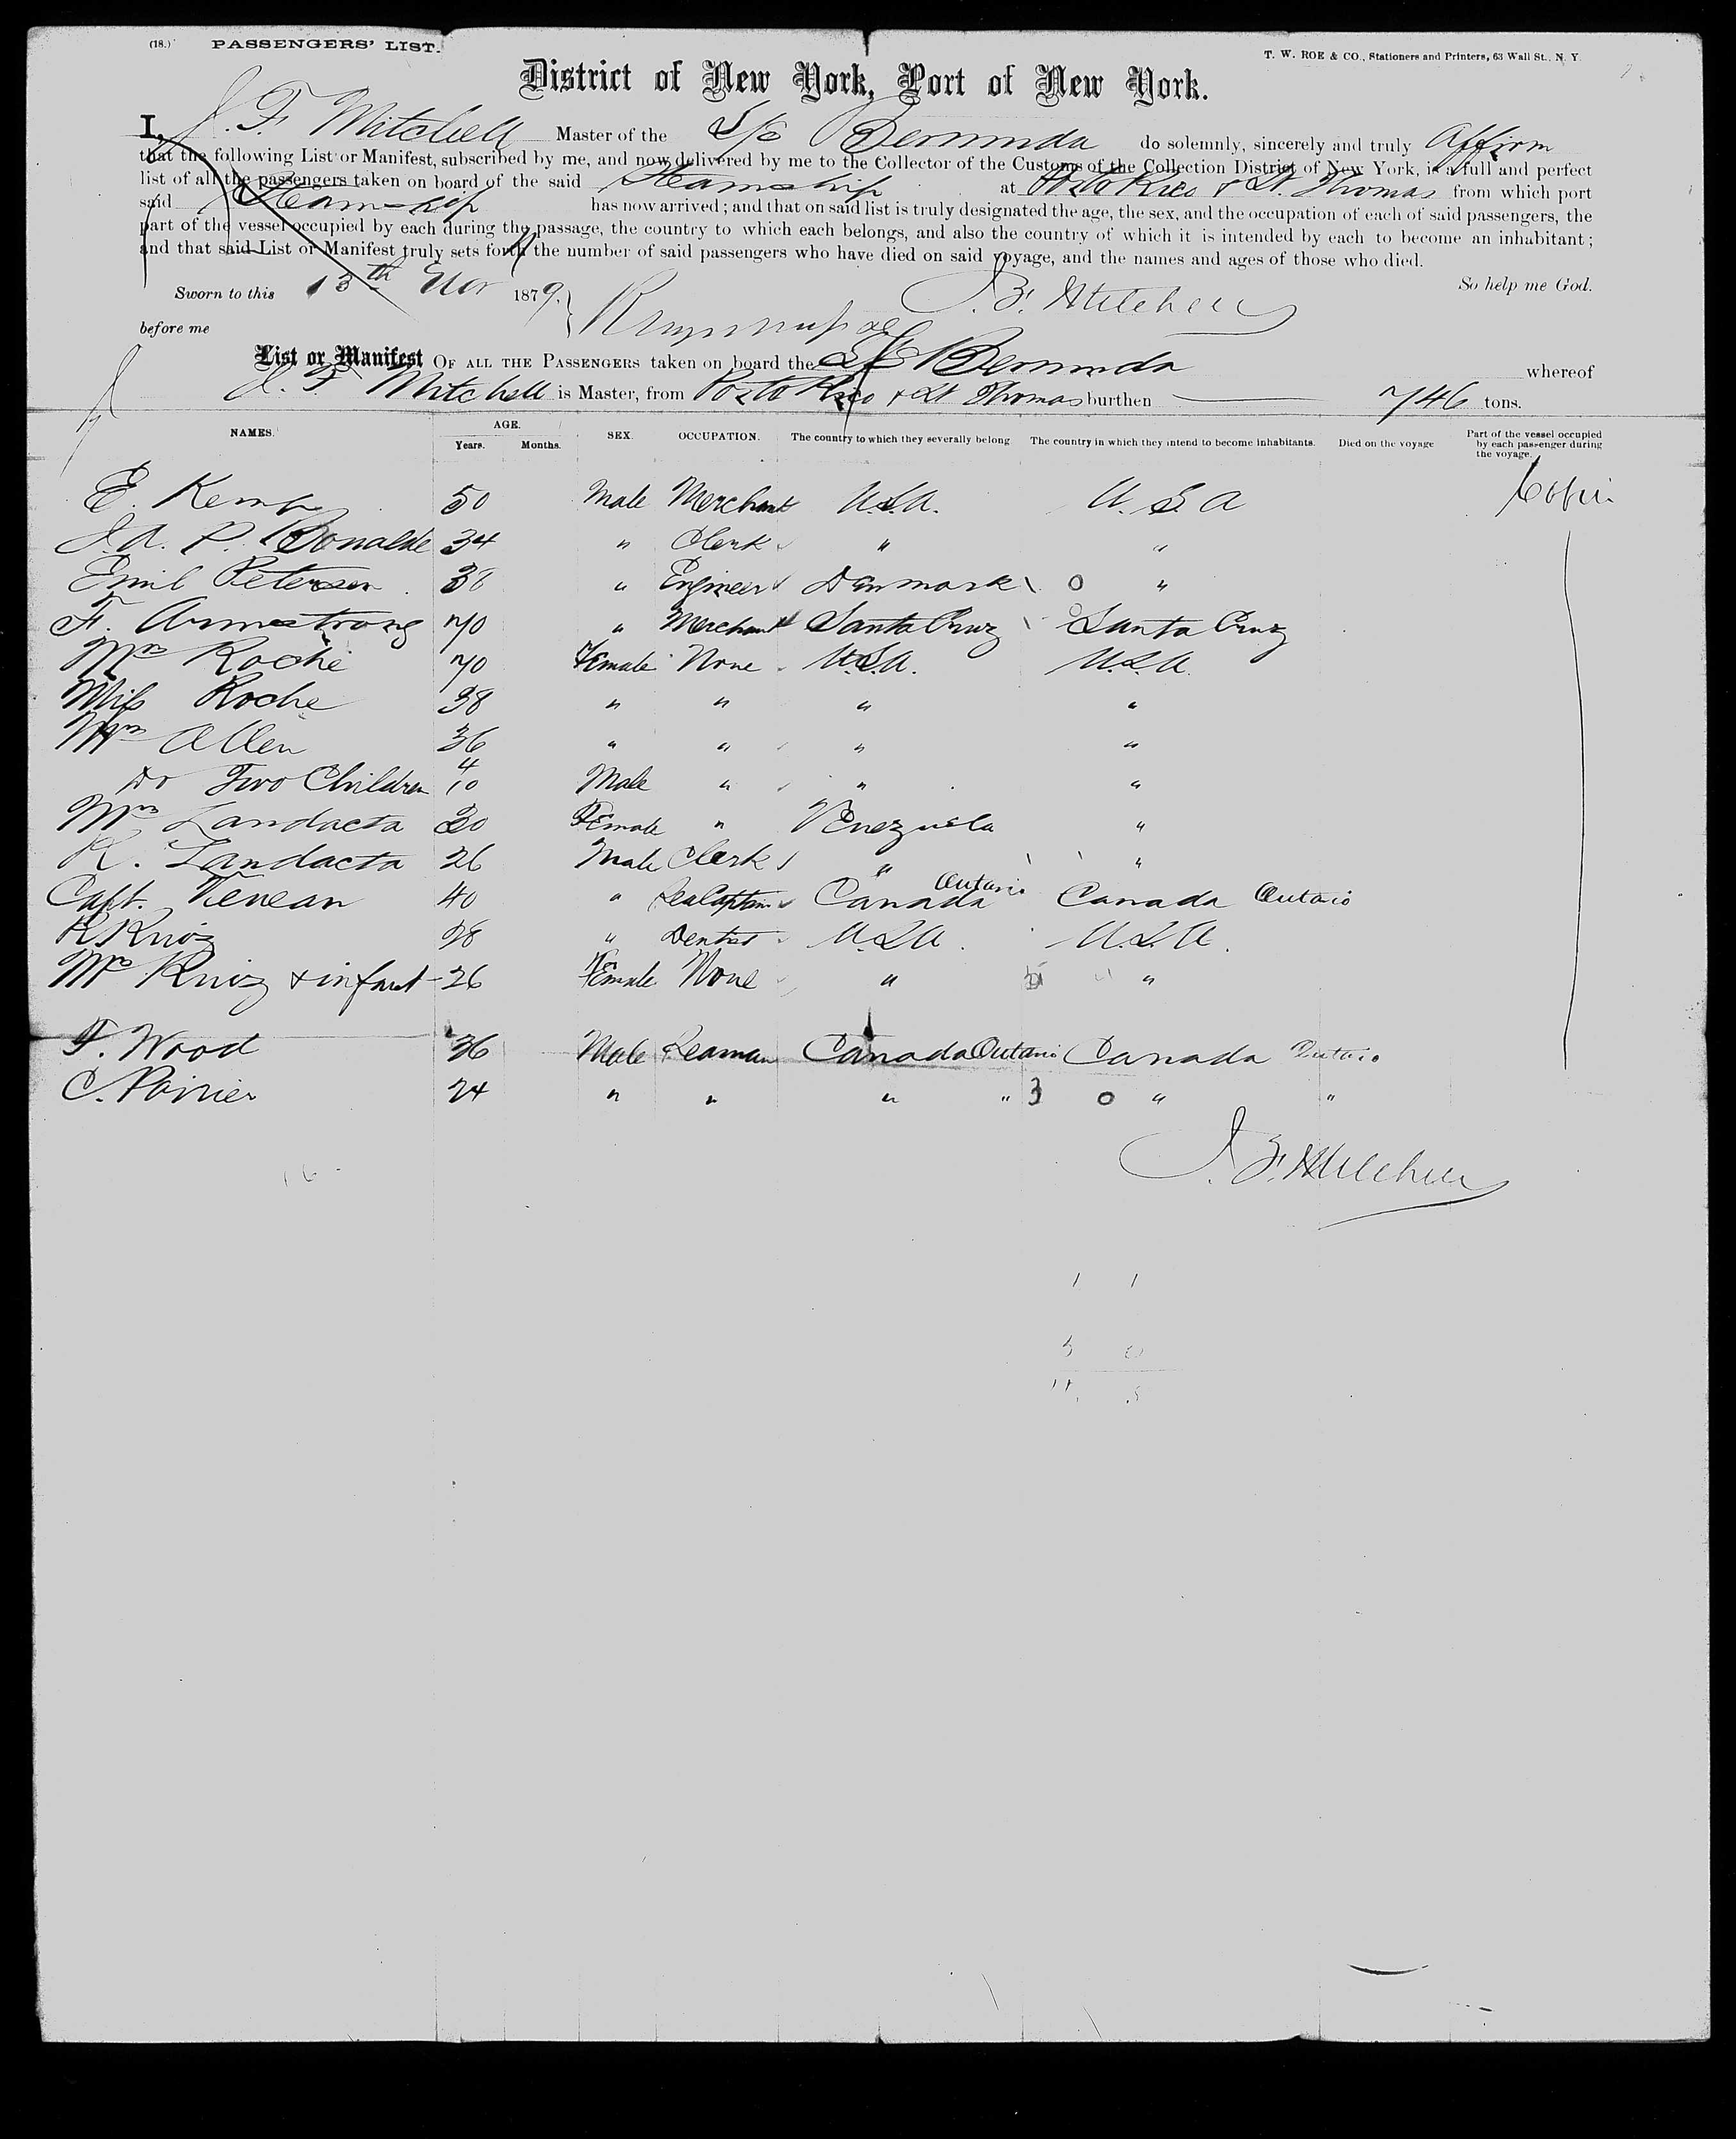 (18.) PASSENGERS' LIST. T. W. ROE & CO., Stationers and Printers, 63 Wall St., N. Y.
District of New York, Port of New York.
I, J. F. Mitchell Master of the S/S Bermuda do solemnly, sincerely and truly Affirm
that the following List or Manifest, subscribed by me, and now delivered by me to the Collector of the Customs of the Collection District of New York, is a full and perfect
list of all the passengers taken on board of the said Steamship at Porto Rico & St. Thomas from which port
said Steamship has now arrived; and that on said list is truly designated the age, the sex, and the occupation of each of said passengers, the
part of the vessel occupied by each during the passage, the country to which each belongs, and also the country of which it is intended by each to become an inhabitant;
and that said List or Manifest truly sets forth the number of said passengers who have died on said voyage, and the names and ages of those who died.
So help me God.
Sworn to this 13th Nov 1879. J. F. Mitchell
before me
List or Manifest OF ALL THE PASSENGERS taken on board the S/S Bermuda whereof
J. F. Mitchell is Master, from Porto Rico & St Thomas burthen 746 tons.
NAMES. AGE. Years. Months. SEX. OCCUPATION. The country to which they severally belong The country in which they intend to become inhabitants. Died on the voyage Part of the vessel occupied by each passenger during the voyage.
E. Kemp 50 Male Merchant U.S.A. U.S.A Cabin
J. A. P. Ronalde 34 " Clerk " "
Emil Petersen 38 " Engineer Danmark O "
F. Armstrong 70 " Merchant Santa Cruz Santa Cruz
Mrs Roche 70 Female None U.S.A. U.S.A.
Miss Roche 38 " " " "
Mrs Allen 36 " " " "
Do Two Children 4 10 Male " " "
Mrs Landacta 30 Female " Venezuela "
R. Landacta 26 Male Clerk " "
Capt. Venean 40 " Sea Captain Canada Ontario Canada Ontario
R Ruiz 28 " Dentist U.S.A. U.S.A.
Mrs Ruiz & infant 26 Female None " "
F. Wood 36 Male Seaman Canada Ontario Canada Ontario
C. Poirier 24 " " " " 3 O " "
J. F. Mitchell
16
1 1